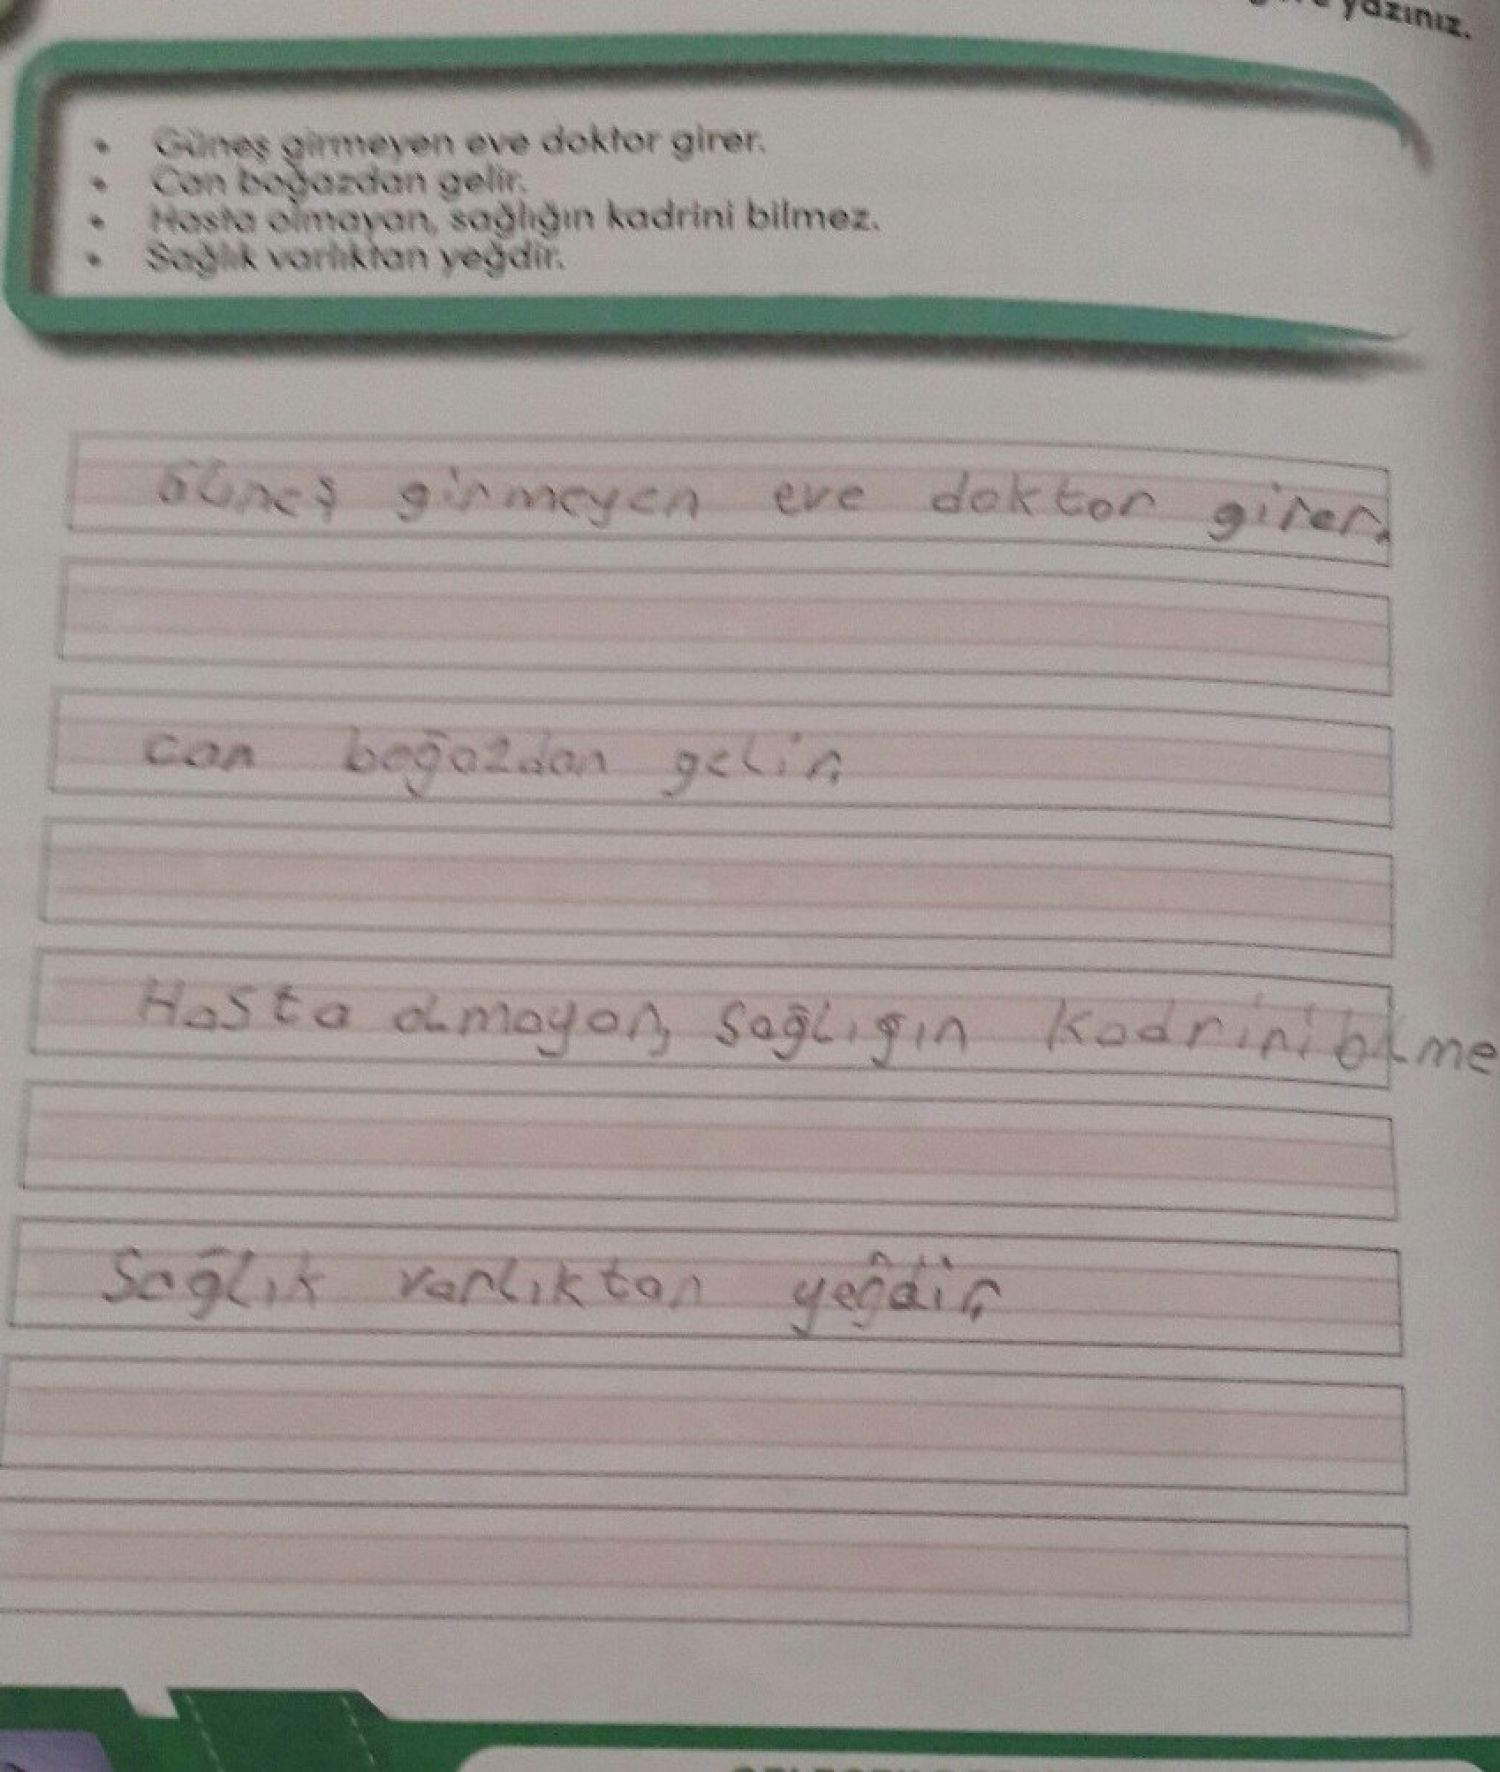 yazınız.
• Güneş girmeyen eve doktor girer.
• Can boğazdan gelir.
• Hasta olmayan, sağlığın kadrini bilmez.
• Sağlık varlıktan yeğdir.
Güneş girmeyen eve doktor girer.
can boğazdan gelir.
Hasta olmayan, sağlığın kadrini bilme
Sağlık varlıktan yeğdir.